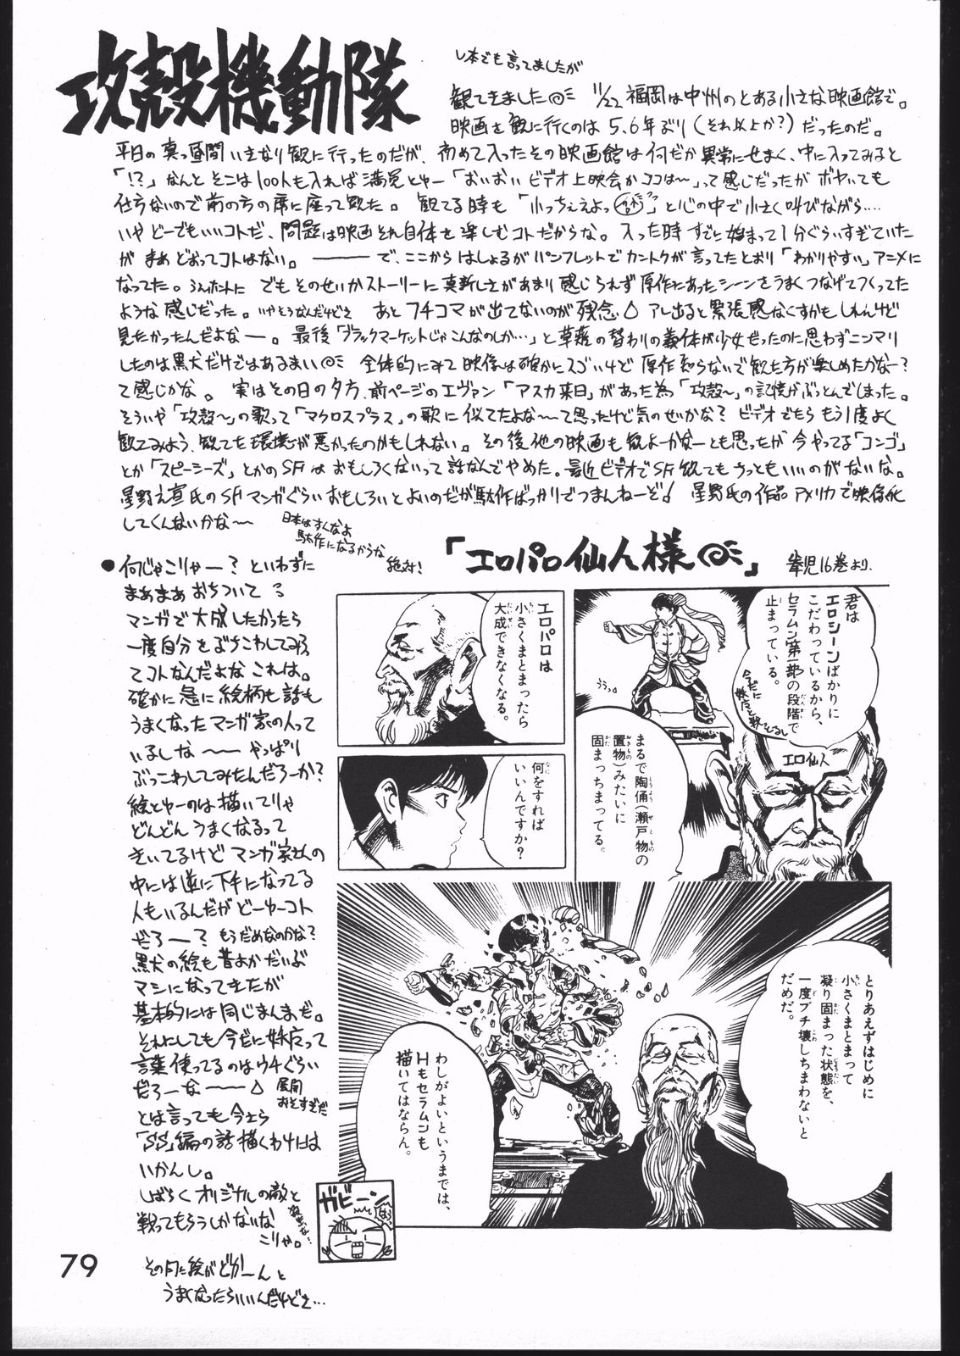 攻殻機動隊
レ本でも言ってましたが
観てきました 11/22 福岡は中州のとある小さな映画館で。
映画を観に行くのは5.6年ぶり(それ以上か?)だったのだ。
平日の真っ昼間いきなり観に行ったのだが、初めて入ったその映画館は何だか異常にせまく、中に入ってみると
「!?」なんとそこは100人も入れば満員とゆー「おいおいビデオ上映会かココは〜」って感じだったがボヤいても
仕方ないので前の方の席に座って観た。観てる時も「小っちぇえよっ」と心の中で小さく叫びながら‥‥
いやどーでもいいコトだ、問題は映画それ自体を楽しむコトだからな。入った時すでに始まって1分ぐらいすぎていた
がまあどおってコトはない。―――で、ここからはしょるがパンフレットでカントクが言ってたとおり「わかりやすい」アニメに
なってた。うんホントに でもそのせいかストーリーに真新しさがあまり感じられず原作にあったシーンをうまくつなげてつくってた
ような感じだった。いやそうなんだけどさ あとフチコマが出てないのが残念 アレ出ると緊張感なくすかもしれんけど
見たかったんだよなー。最後「ブラックマーケットじゃこんなのしか…」と草薙の替わりの義体が少女だったのに思わずニンマリ
したのは黒犬だけではあるまい 全体的にみて映像は確かにスゴいけど原作知らないで観た方が楽しめたかなー?
て感じかな。実はその日の夕方、前ページのエヴァン「アスカ来日」があった為「攻殻〜」の記憶がぶっとんでしまった。
そういや「攻殻〜」の歌って「マクロスプラス」の歌に似てたよな〜って思ったけど気のせいかな? ビデオでたらもう1度よく
観てみよう、観てた環境が悪かったのかもしれない。その後他の映画も観よーかなーとも思ったが今やってる「コンゴ」
とか「スピーシーズ」とかのSFはおもしろくないって話なんでやめた。最近ビデオでSF観てもうっともいいのがないな。
星野之宣氏のSFマンガぐらいおもしろいとよいのだが駄作ばっかりでつまんねーぞ! 星野氏の作品アメリカで映像化
してくんないかな〜
日本はすんなよ
駄作になるからな
絶対!
「エロパロ仙人様」 拳児16巻より.
●何じゃこりゃー? といわずに
まあまあおちついて
マンガで大成したかったら
一度自分をぶちこわしてみろ
てコトなんだよな これは。
確かに急に絵柄も話も
うまくなったマンガ家の人って
いるしな〜― やっぱり
ぶっこわしてみたんだろーか?
絵とゆーのは描いてりゃ
どんどんうまくなるって
きいてるけどマンガ家さんの
中には逆に下手になってる
人もいるんだがどーゆーコト
だろー? もうだめなのかな?
黒犬の絵も昔よかだいぶ
マシになってきたが
基本的には同じまんまだ。
それにしても今だに妖魔って
言葉使ってるのはウチぐらい
だろーな―――
展開
おそすぎだ
とは言っても今さら
「SS」編の話描くわけには
いかんし。
しばらくオリジナルの敵と
戦ってもらうしかないな
こりゃ。
その内に絵がどかーんと
うまくなったらいいんだけどさ…
君は
エロシーンばかりに
こだわっているから、
セラムン第一部の段階で
止まっている。
エロ仙人
まるで陶俑(瀬戸物の
置物)みたいに
固まっちまってる。
エロパロは
小さくまとまったら
大成できなくなる。
何をすれば
いいんですか?
とりあえずはじめに
小さくまとまって
凝り固まった状態を、
一度ブチ壊しちまわないと
だめだ。
わしがよいというまでは、
Hもセラムンも
描いてはならん。
ガビーン
79